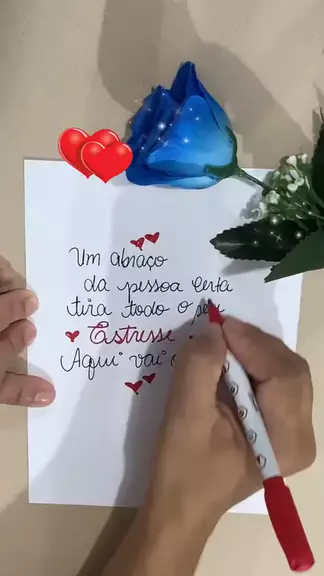 Um abraço
da pessoa certa
tira todo o seu
Estresse
Aqui vai